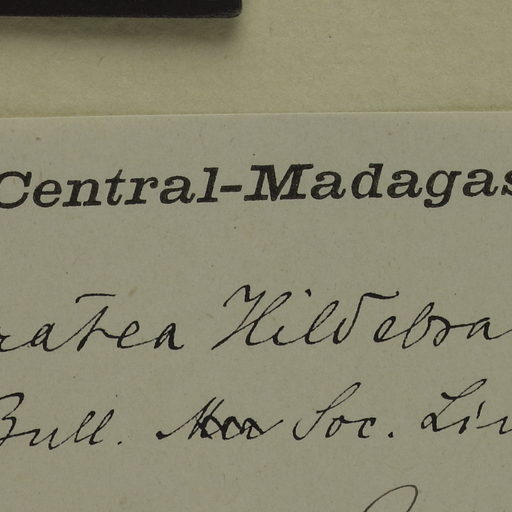 Central-Madagas
ratea Hildebra
Bull. Soc. Lin